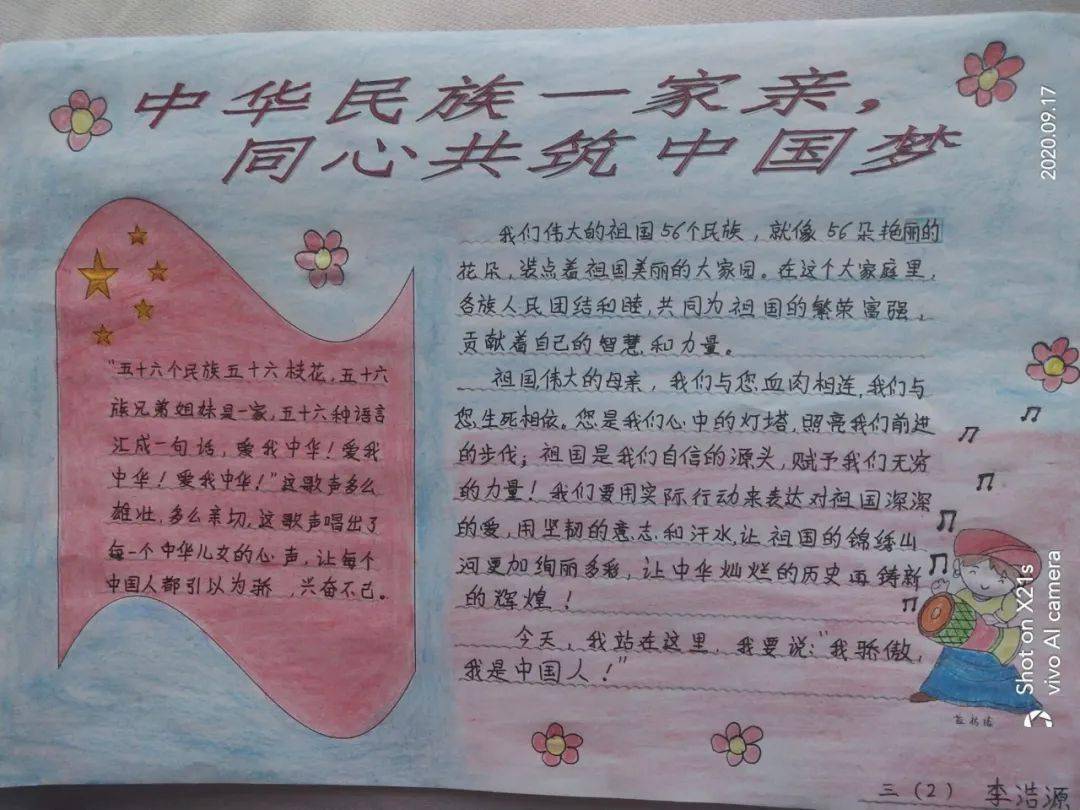 中华民族一家亲，
同心共筑中国梦
"五十六个民族五十六枝花，五十六
族兄弟姐妹是一家，五十六种语言
汇成一句话，爱我中华！爱我
中华！爱我中华！"这歌声多么
雄壮，多么亲切，这歌声唱出了
每一个中华儿女的心声，让每个
中国人都引以为骄，兴奋不已。
我们伟大的祖国56个民族，就像56朵艳丽的
花朵，装点着祖国美丽的大家园。在这个大家庭里，
各族人民团结和睦，共同为祖国的繁荣富强，
贡献着自己的智慧和力量。
祖国，伟大的母亲，我们与您血肉相连，我们与
您生死相依。您是我们心中的灯塔，照亮我们前进
的步伐；祖国是我们自信的源头，赋予我们无穷
的力量！我们要用实际行动来表达对祖国深深
的爱，用坚韧的意志和汗水，让祖国的锦绣山
河更加绚丽多彩，让中华灿烂的历史再铸新
的辉煌！
今天，我站在这里，我要说："我骄傲，
我是中国人！"
三（2） 李浩源
2020.09.17
Shot on X21s
vivo AI camera